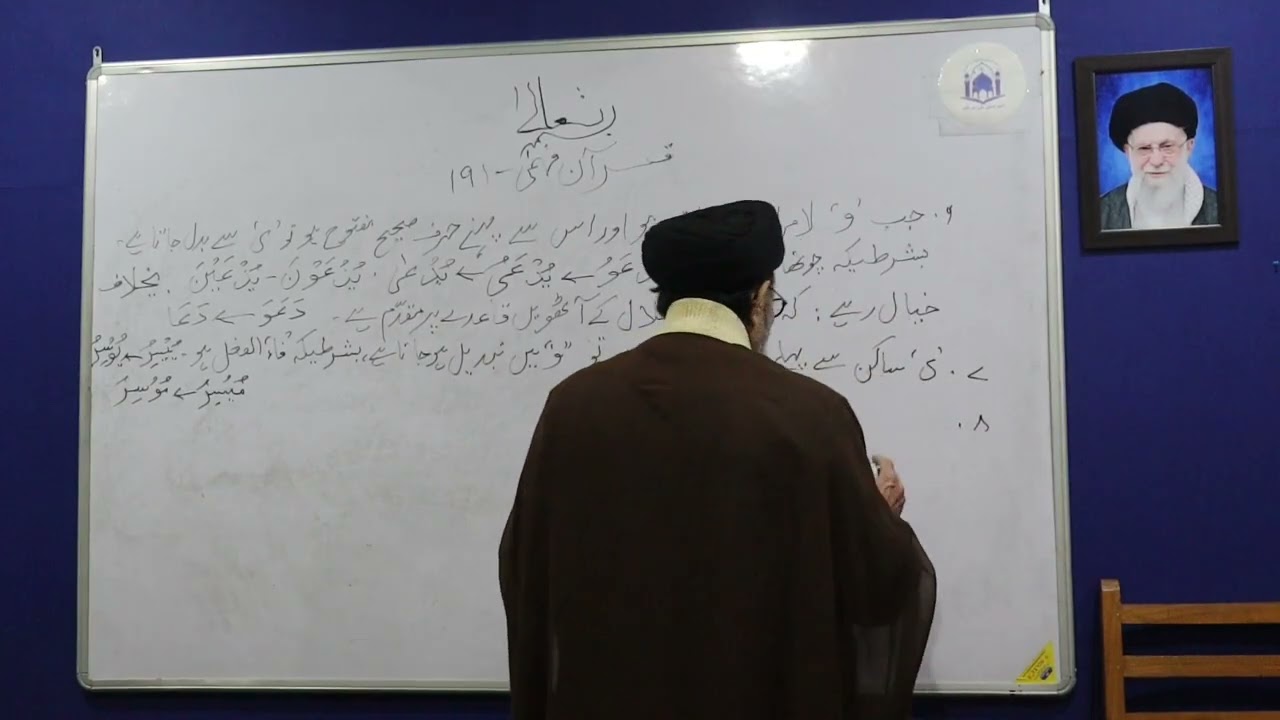 بسمہ تعالیٰ
قرآن فہمی - ۱۹۱
۶. جب 'و' لام اور اس سے پہلے حرف صحیح مفتوح ہو تو 'ی' سے بدل جاتا ہے۔
بشرطیکہ چوتھا یُدْعَوُ ے یُدْعَیُ ے یُدْعیٰ . یُدْعَوْنَ - یُدْعَیْنَ . بخلاف
خیال رہے : کہ کے آٹھویں قاعدے پر مقدّم ہے ۔ دَعَوَ ے دَعَا
۷. 'ی' ساکن سے پہلے تو "و" میں تبدیل ہو جاتا ہے، بشرطیکہ فاء الفعل ہو۔ یُیْسِرُ ے یُوْسِرُ
مُیْسِرٌ ے مُوْسِرٌ
۸.